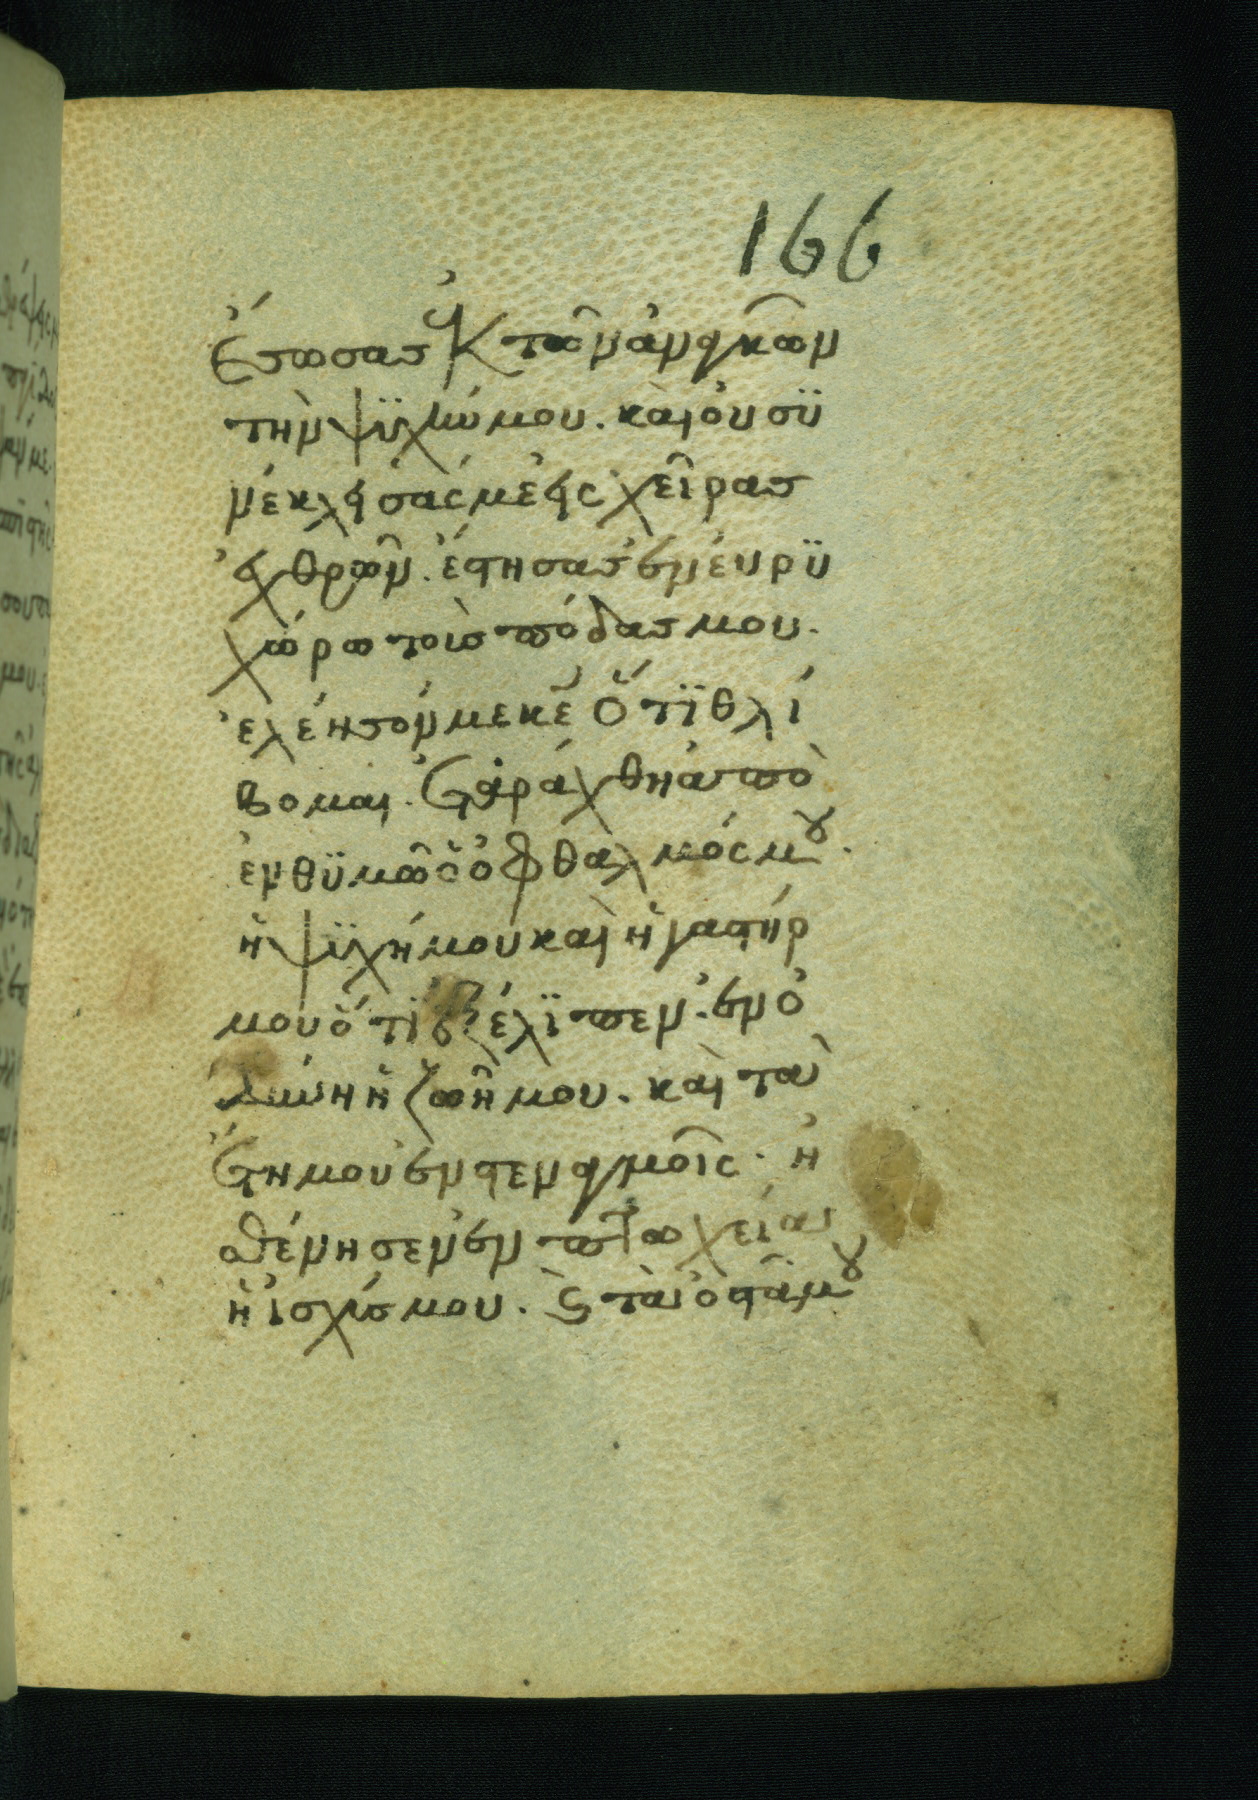 166
Ἔσωσας ἐκ τῶν ἀναγκῶν
τὴν ψϋχήν μου. καὶ οὐ σϋ
νέκλεισάς με εἰς χεῖρας
ἐχθρῶν. ἔστησας ἐν εὐρϋ
χώρω τοὺς πόδας μου.
ἐλέησόν με κε ὅτϊ θλί
βομαι. Ἐταράχθη ἀπὸ
ἐν θϋμῶ ὁ ὀφθαλμός μου.
ἡ ψϋχή μου καὶ ἡ γαστήρ
μου ὅτϊ ἐξέλϊπεν. ἐν ὀ
δύνη ἡ ζωῆ μου. καὶ τὰ
Ἔτη μου ἐν στεναγμοῖς. ἠ
σθένησεν ἐν πτωχεία
ἡ ἰσχύς μου. ϗ τὰ ὀστᾶ μου